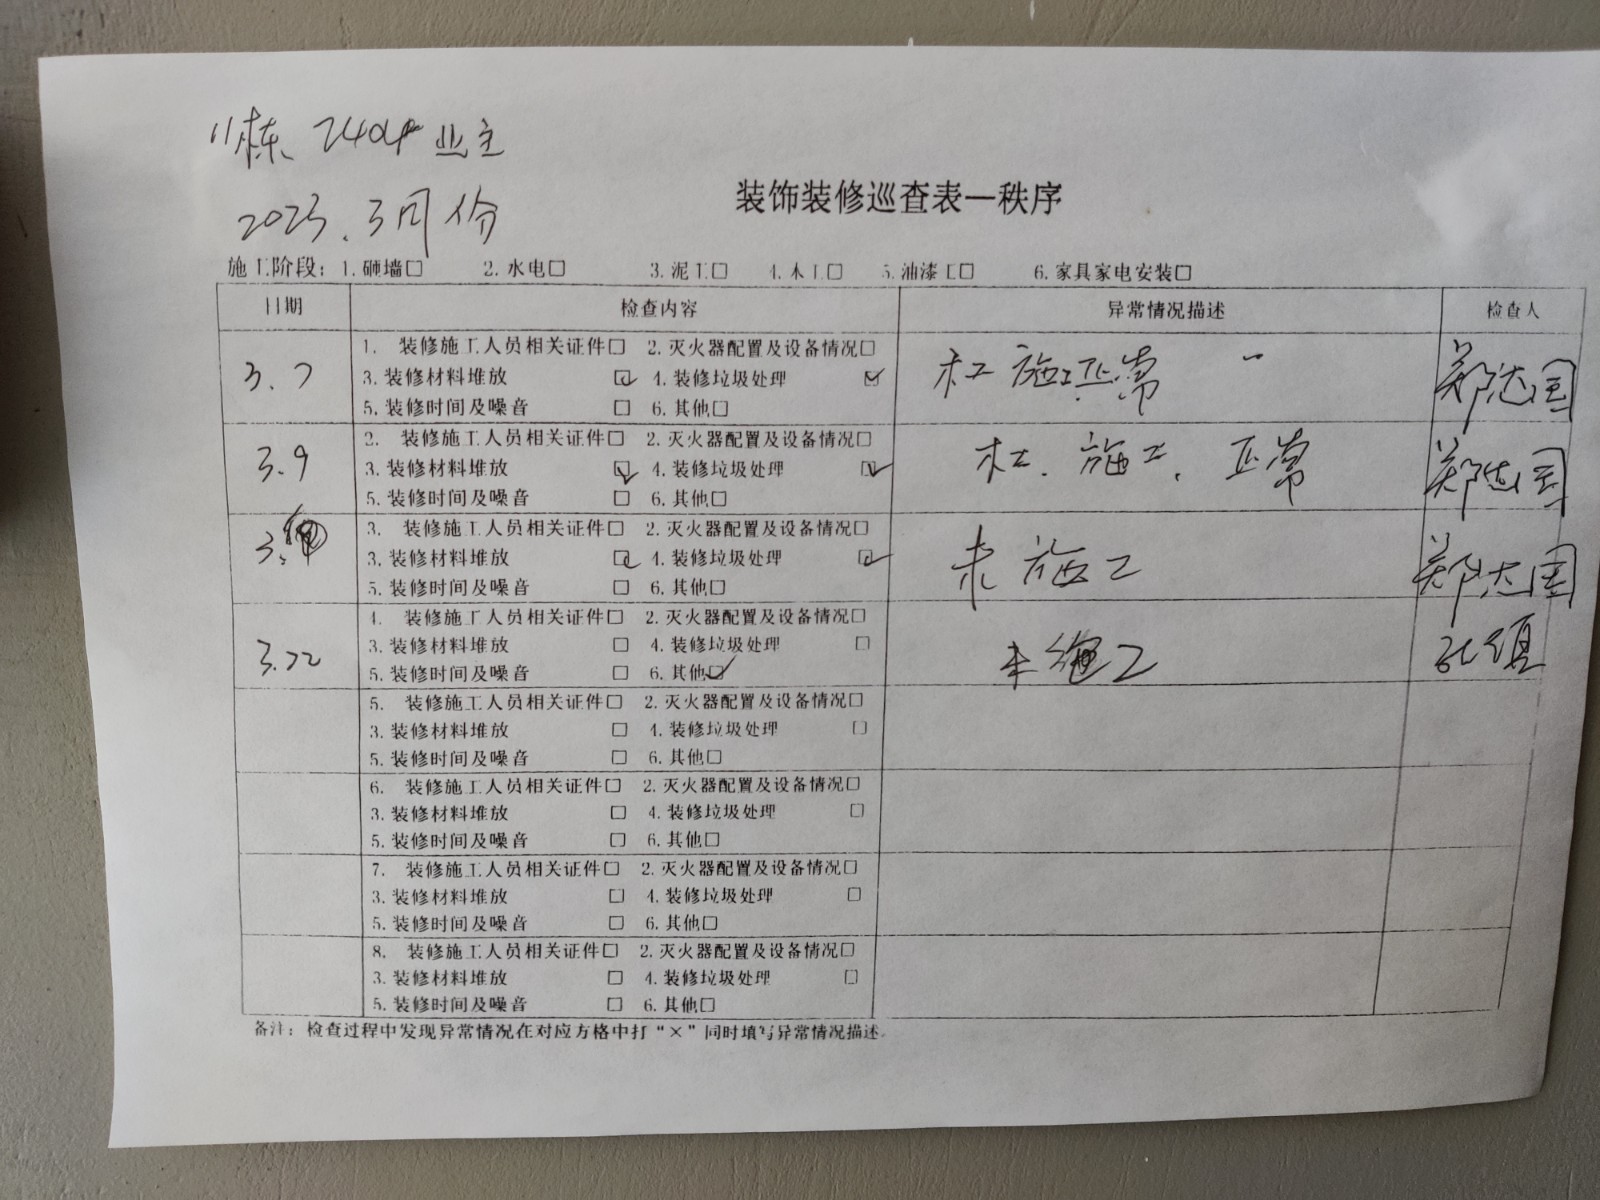 11栋 2404业主
2023.3月份
装饰装修巡查表—秩序
施工阶段：1.砸墙□ 2.水电□ 3.泥工□ 4.木工□ 5.油漆工□ 6.家具家电安装□
日期 检查内容 异常情况描述 检查人
1. 装修施工人员相关证件□ 2.灭火器配置及设备情况□
3.7 3.装修材料堆放 ☑ 4.装修垃圾处理 ☑ 木工施工正常 郑达国
5.装修时间及噪音 □ 6.其他□
2. 装修施工人员相关证件□ 2.灭火器配置及设备情况□
3.9 3.装修材料堆放 ☑ 4.装修垃圾处理 ☑ 木工.施工.正常 郑达国
5.装修时间及噪音 □ 6.其他□
3. 装修施工人员相关证件□ 2.灭火器配置及设备情况□
3. 3.装修材料堆放 ☑ 4.装修垃圾处理 ☑ 未施工 郑达国
5.装修时间及噪音 □ 6.其他□
4. 装修施工人员相关证件□ 2.灭火器配置及设备情况□
3.22 3.装修材料堆放 □ 4.装修垃圾处理 □ 未 工
5.装修时间及噪音 □ 6.其他☑
5. 装修施工人员相关证件□ 2.灭火器配置及设备情况□
3.装修材料堆放 □ 4.装修垃圾处理 □
5.装修时间及噪音 □ 6.其他□
6. 装修施工人员相关证件□ 2.灭火器配置及设备情况□
3.装修材料堆放 □ 4.装修垃圾处理 □
5.装修时间及噪音 □ 6.其他□
7. 装修施工人员相关证件□ 2.灭火器配置及设备情况□
3.装修材料堆放 □ 4.装修垃圾处理 □
5.装修时间及噪音 □ 6.其他□
8. 装修施工人员相关证件□ 2.灭火器配置及设备情况□
3.装修材料堆放 □ 4.装修垃圾处理 □
5.装修时间及噪音 □ 6.其他□
备注：检查过程中发现异常情况在对应方格中打“×”同时填写异常情况描述。